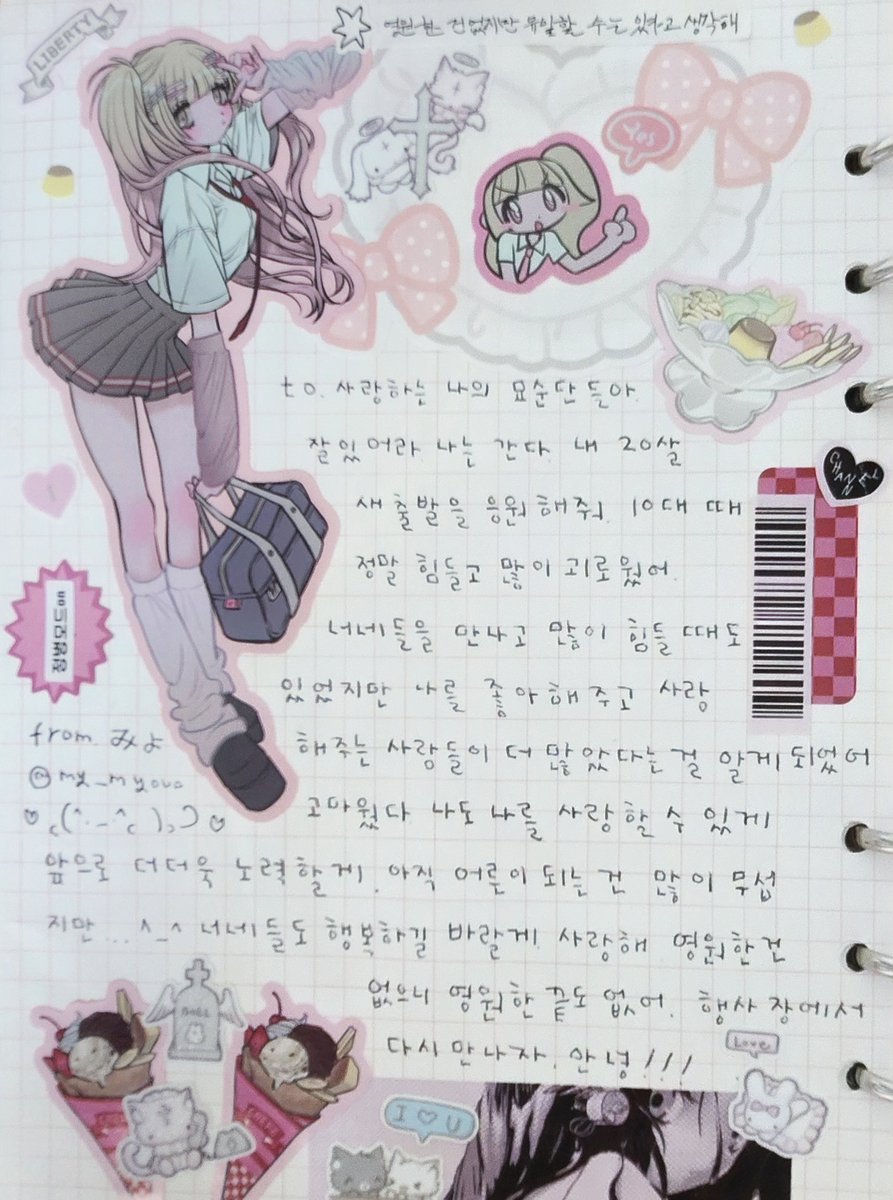 LIBERTY
영원한 건 없지만 유일할 수는 있다고 생각해
Yes
to. 사랑하는 나의 묘순단들아.
잘있어라 나는 간다. 내 20살
새 출발을 응원해줘. 10대 때
정말 힘들고 많이 괴로웠어.
너네들을 만나고 많이 힘들 때도
있었지만 나를 좋아해주고 사랑
해주는 사람들이 더 많았다는 걸 알게 되었어
고마웠다 나도 나를 사랑할 수 있게
앞으로 더더욱 노력할게. 아직 어른이 되는 건 많이 무섭
지만... ^_^ 너네들도 행복하길 바랄게. 사랑해 영원한건
없으니 영원한 끝도 없어. 행사장에서
다시 만나자. 안녕!!!
CHANNEL
from. みょ
I ♡ U
Love